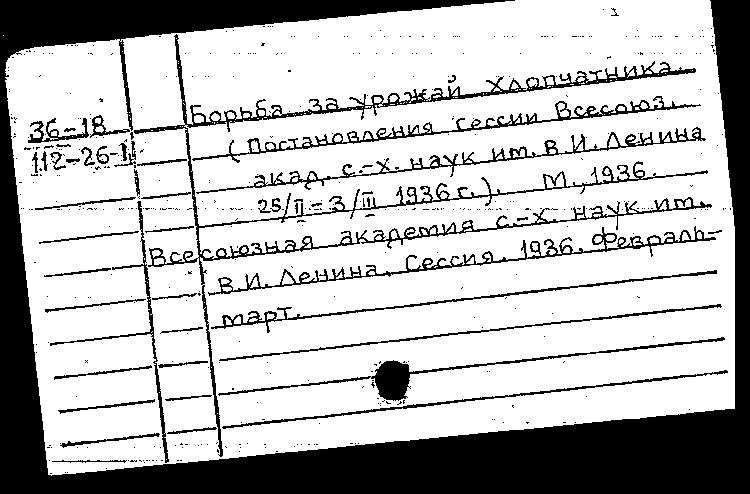 36-18
112-26-1
Борьба за урожай хлопчатника.
(Постановления сессии Всесоюз.
акад. с.-х. наук им. В.И. Ленина
25/II-3/III 1936 г.). М., 1936.
Всесоюзная академия с.-х. наук им.
В.И. Ленина. Сессия. 1936. Февраль-
март.